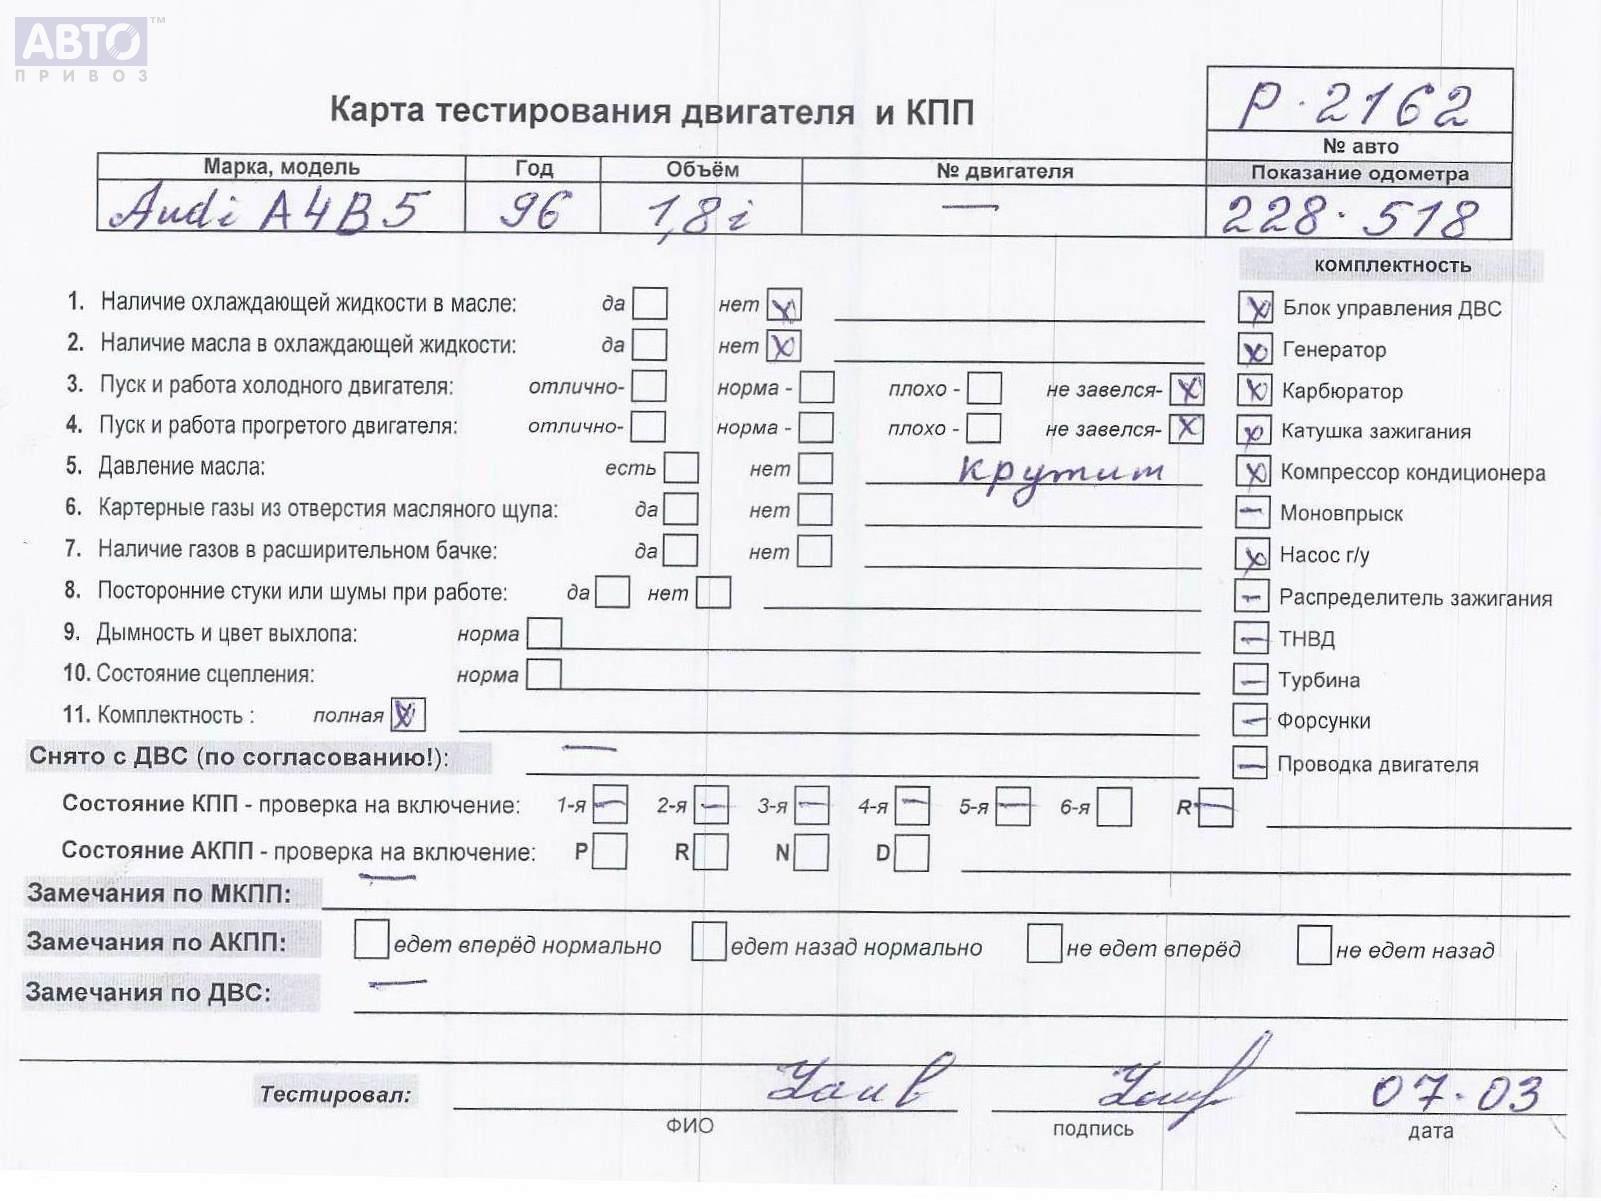 АВТО™
ПРИВОЗ
Р·2162
Карта тестирования двигателя и КПП
№ авто
Марка, модель Год Объём № двигателя Показание одометра
Audi A4B5 96 1,8i — 228·518
комплектность
1. Наличие охлаждающей жидкости в масле: да нет X X Блок управления ДВС
2. Наличие масла в охлаждающей жидкости: да нет X X Генератор
3. Пуск и работа холодного двигателя: отлично- норма - плохо - не завелся- X X Карбюратор
4. Пуск и работа прогретого двигателя: отлично- норма - плохо - не завелся- X X Катушка зажигания
5. Давление масла: есть нет крутит X Компрессор кондиционера
6. Картерные газы из отверстия масляного щупа: да нет — Моновпрыск
7. Наличие газов в расширительном бачке: да нет X Насос г/у
8. Посторонние стуки или шумы при работе: да нет — Распределитель зажигания
9. Дымность и цвет выхлопа: норма — ТНВД
10. Состояние сцепления: норма — Турбина
11. Комплектность : полная X — Форсунки
Снято с ДВС (по согласованию!): — — Проводка двигателя
Состояние КПП - проверка на включение: 1-я — 2-я — 3-я — 4-я — 5-я — 6-я R —
Состояние АКПП - проверка на включение: P R N D
Замечания по МКПП: —
Замечания по АКПП: едет вперёд нормально едет назад нормально не едет вперёд не едет назад
Замечания по ДВС: —
Тестировал: 07·03
ФИО подпись дата